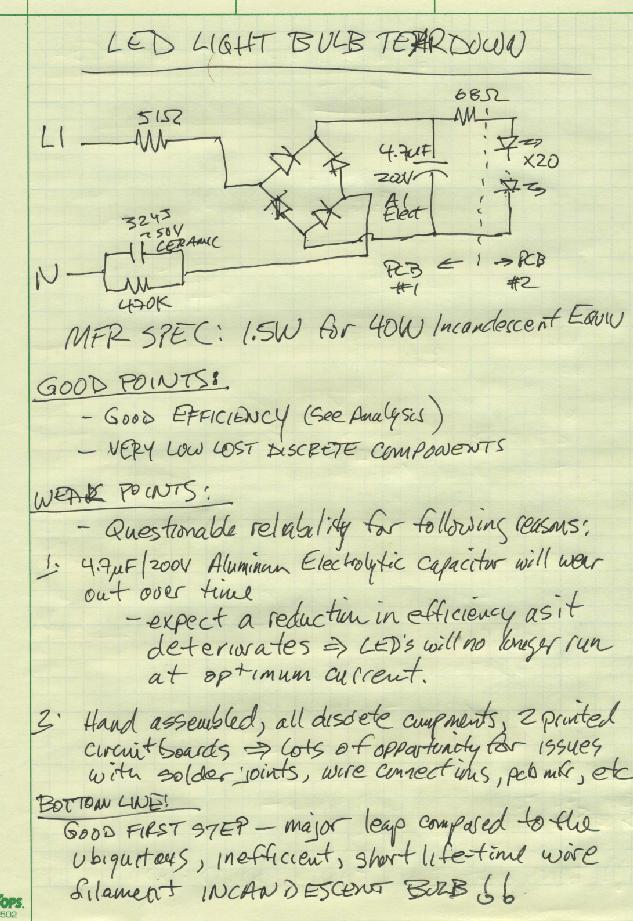 LED LIGHT BULB TEARDOWN
68Ω
51Ω
L1
4.7µF
X20
200V
Al
Elect
324J
250V
CERAMIC
N
470K
PCB
#1
PCB
#2
MFR SPEC: 1.5W for 40W Incandescent EQUIV
GOOD POINTS:
- GOOD EFFICIENCY (See Analysis)
- VERY LOW COST DISCRETE COMPONENTS
WEAK POINTS:
- Questionable reliability for following reasons:
1. 4.7µF/200V Aluminum Electrolytic Capacitor will wear
out over time
- expect a reduction in efficiency as it
deteriorates ⇒ LED's will no longer run
at optimum current.
2. Hand assembled, all discrete components, 2 printed
circuit boards ⇒ lots of opportunity for issues
with solder joints, wire connections, pcb mfr, etc
BOTTOM LINE!
GOOD FIRST STEP - major leap compared to the
ubiquitous, inefficient, short life-time wire
filament INCANDESCENT BULB
OPS.
502